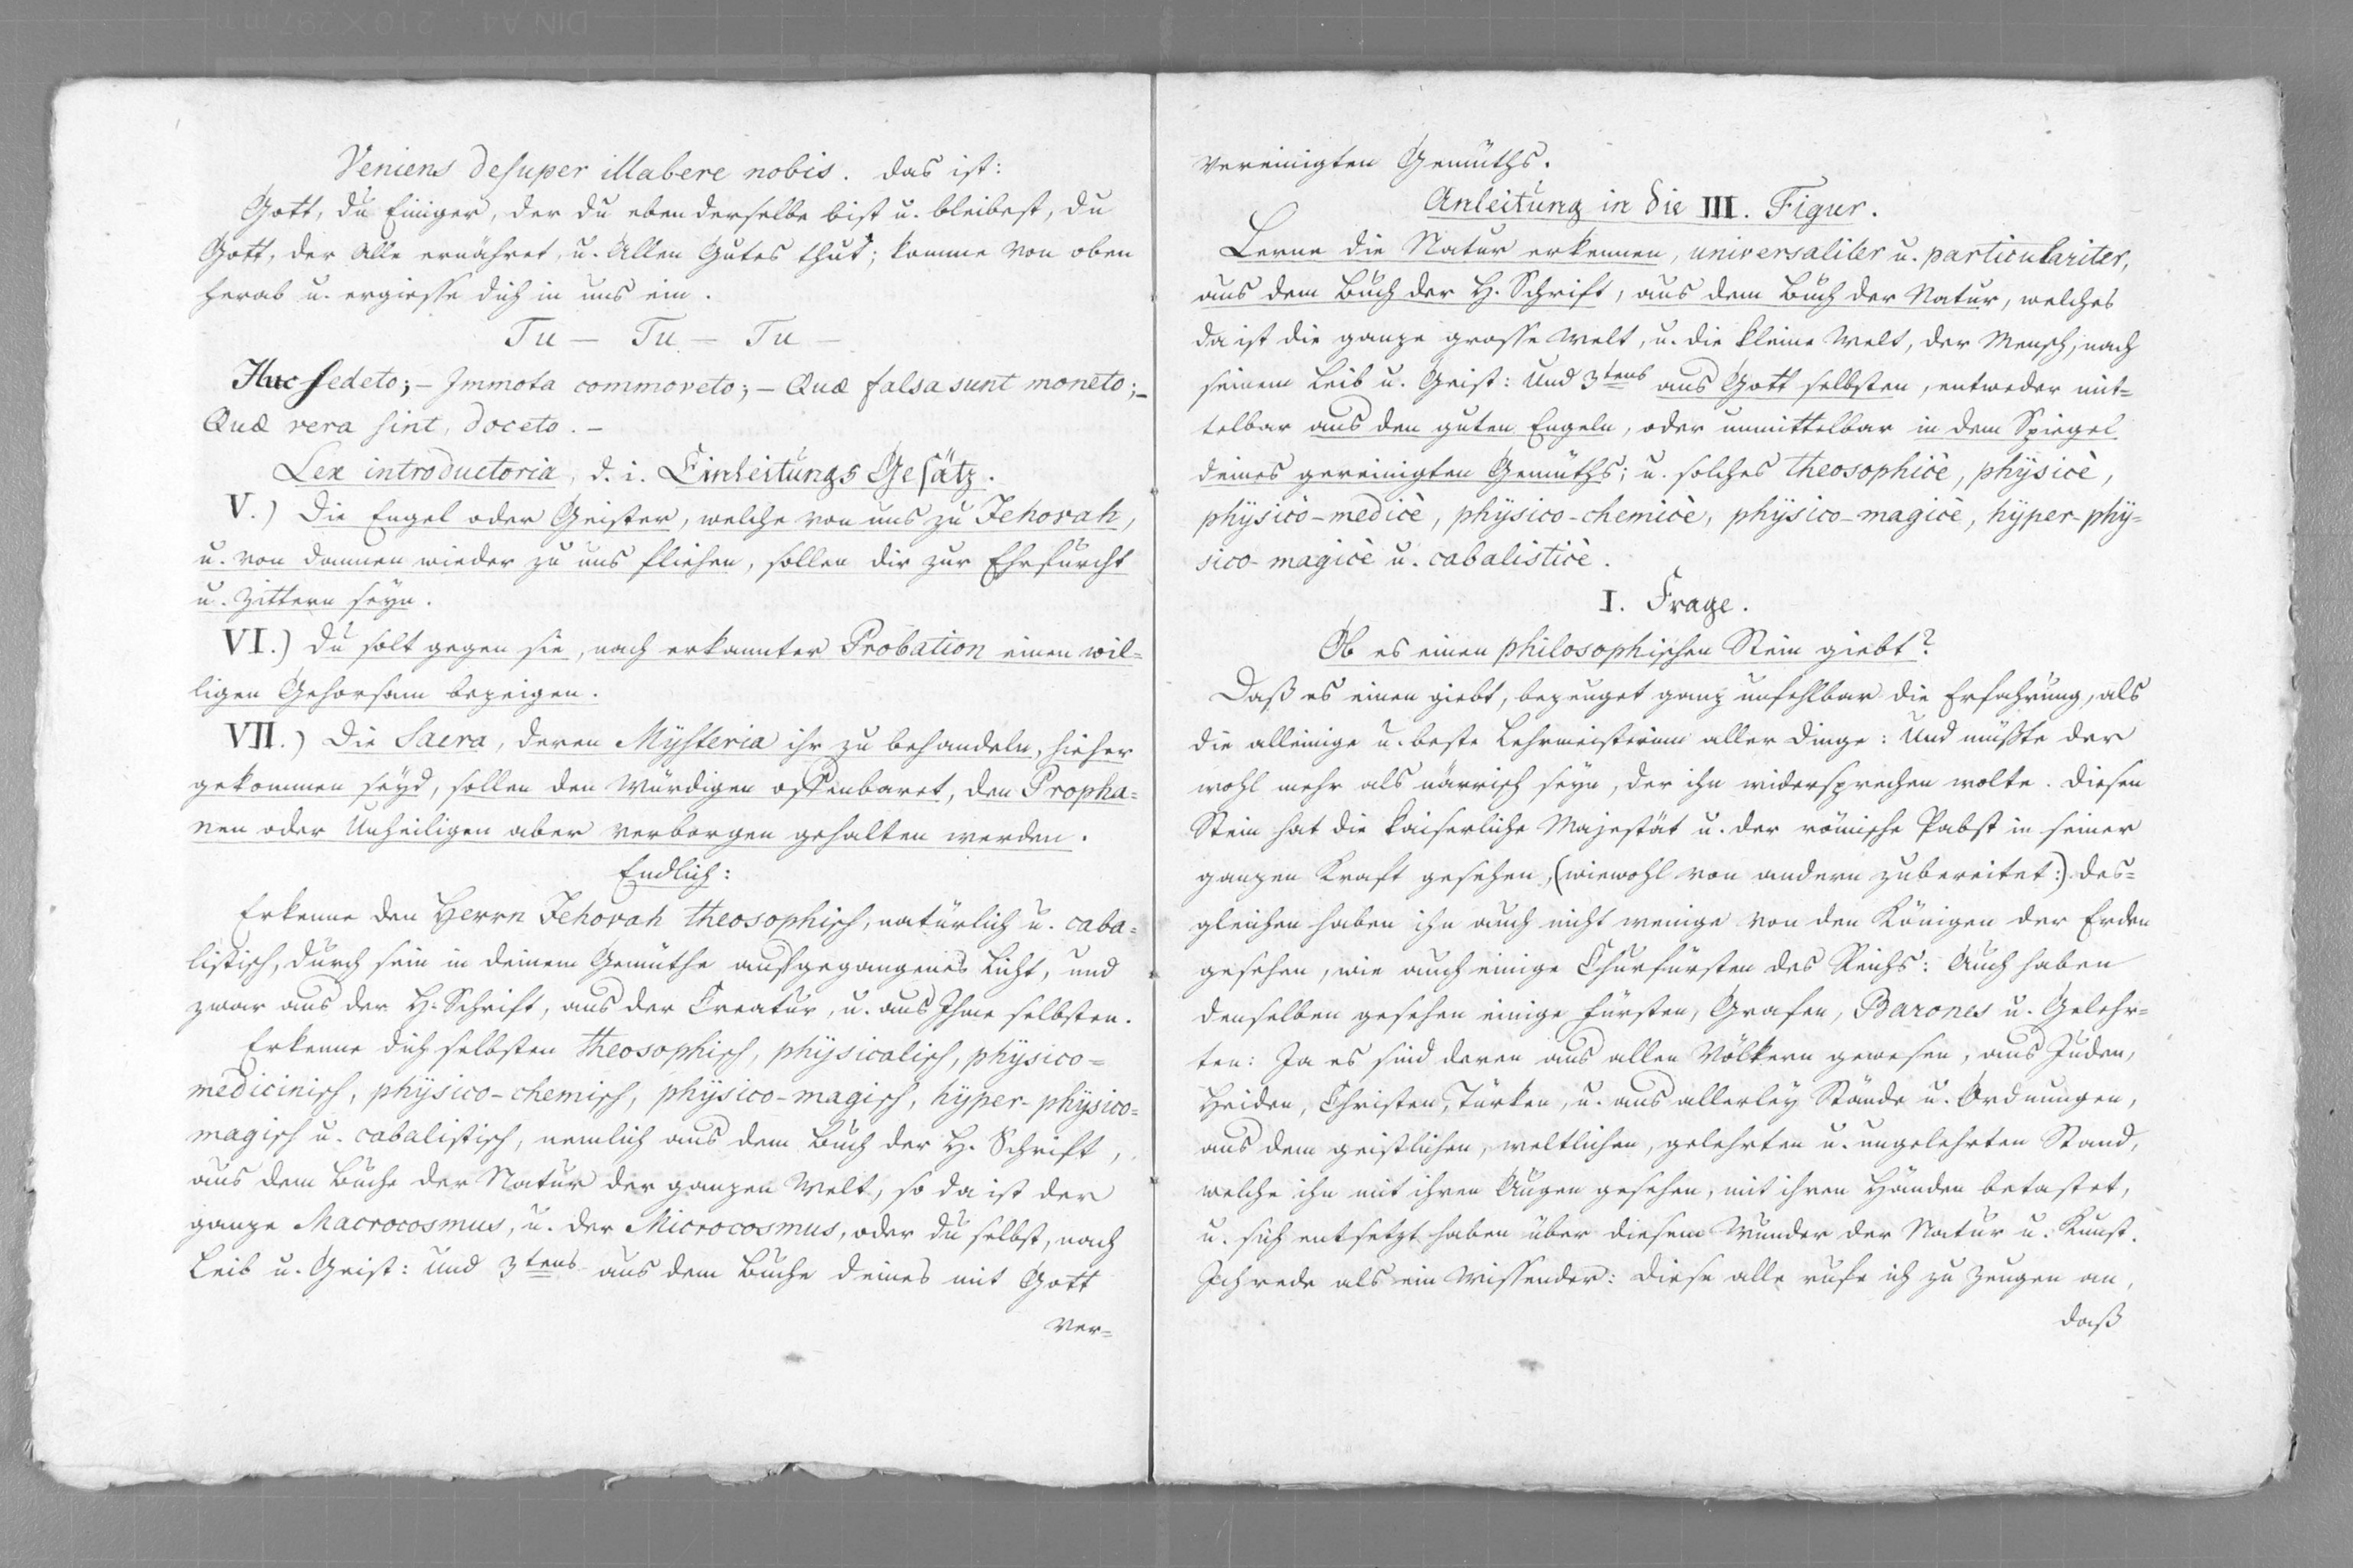 Veniens desuper illabere nobis. das ist:
Gott, du Einiger, der du eben derselbe bist u. bleibest, du
Gott, der Alle ernähret, u. Allen Gutes thut; komme von oben
herab u. ergiesse dich in uns ein.
Tu — Tu — Tu —
Huc sedeto; – Immota commoveto; – Quæ falsa sunt moneto; –
Quæ vera sint, doceto. –
Lex introductoria, d. i. Einleitungs Gesätz.
V.) Die Engel oder Geister, welche von uns zu Jehovah,
u. von dannen wieder zu uns fliehen, sollen dir zur Ehrfurcht
u. Zittern seyn.
VI.) Du solt gegen sie, nach erkannter Probation einen wil=
ligen Gehorsam bezeigen.
VII.) Die Sacra, deren Mÿsteria ihr zu behandeln, hieher
gekommen seyd, sollen den Würdigen offenbaret, den Propha=
nen oder Unheiligen aber verborgen gehalten werden.
Endlich:
Erkenne den Herrn Jehovah theosophisch, natürlich u. caba=
listisch, durch sein in deinem Gemüthe aufgegangenes Licht, und
zwar aus der H. Schrift, aus der Creatur, u. aus Ihme selbsten.
Erkenne dich selbsten theosophisch, phÿsicalisch, phÿsico=
medicinisch, phÿsico-chemisch, phÿsico-magisch, hÿper-phÿsico=
magisch u. cabalistisch, nemlich aus dem Buch der H. Schrift,
aus dem Buche der Natur der ganzen Welt, so da ist der
ganze Macrocosmus, u. der Microcosmus, oder du selbst, nach
Leib u. Geist: Und 3tens aus dem Buche deines mit Gott
ver=
vereinigten Gemüths.
Anleitung in die III. Figur.
Lerne die Natur erkennen, universaliter u. particulariter,
aus dem Buch der H. Schrift, aus dem Buch der Natur, welches
da ist die ganze grosse Welt, u. die kleine Welt, der Mensch, nach
seinem Leib u. Geist: Und 3tens aus Gott selbsten, entweder mit=
telbar aus den guten Engeln, oder unmittelbar in dem Spiegel
deines gereinigten Gemüths; u. solches theosophicè, phÿsicè,
phÿsicò-medicè, phÿsico-chemicè, phÿsico-magicè, hÿper-phÿ=
sico-magicè u. cabalisticè.
I. Frage.
Ob es einen philosophischen Stein giebt?
Daß es einen giebt, bezeuget ganz unfehlbar die Erfahrung, als
die alleinige u. beste Lehrmeisterinn aller Dinge: Und müßte der
wohl mehr als närrisch seyn, der ihn widersprechen wolte. Diesen
Stein hat die kaiserliche Majestät u. der römische Pabst in seiner
ganzen Kraft gesehen, (wiewohl von andern zubereitet:) des=
gleichen haben ihn auch nicht wenige von den Königen der Erden
gesehen, wie auch einige Churfürsten des Reichs: Auch haben
denselben gesehen einige Fürsten, Grafen, Barones u. Gelehr=
ten: Ja es sind deren aus allen Völkern gewesen, aus Juden,
Heiden, Christen, Türken, u. aus allerleÿ Stände u. Ordnungen,
aus dem geistlichen, weltlichen, gelehrten u. ungelehrten Stand,
welche ihn mit ihren Augen gesehen, mit ihren Händen betastet,
u. sich entsetzt haben über diesem Wunder der Natur u. Kunst.
Ich rede als ein Wissender: Diese alle rufe ich zu Zeugen an,
daß
DIN A4 210 X 297 m